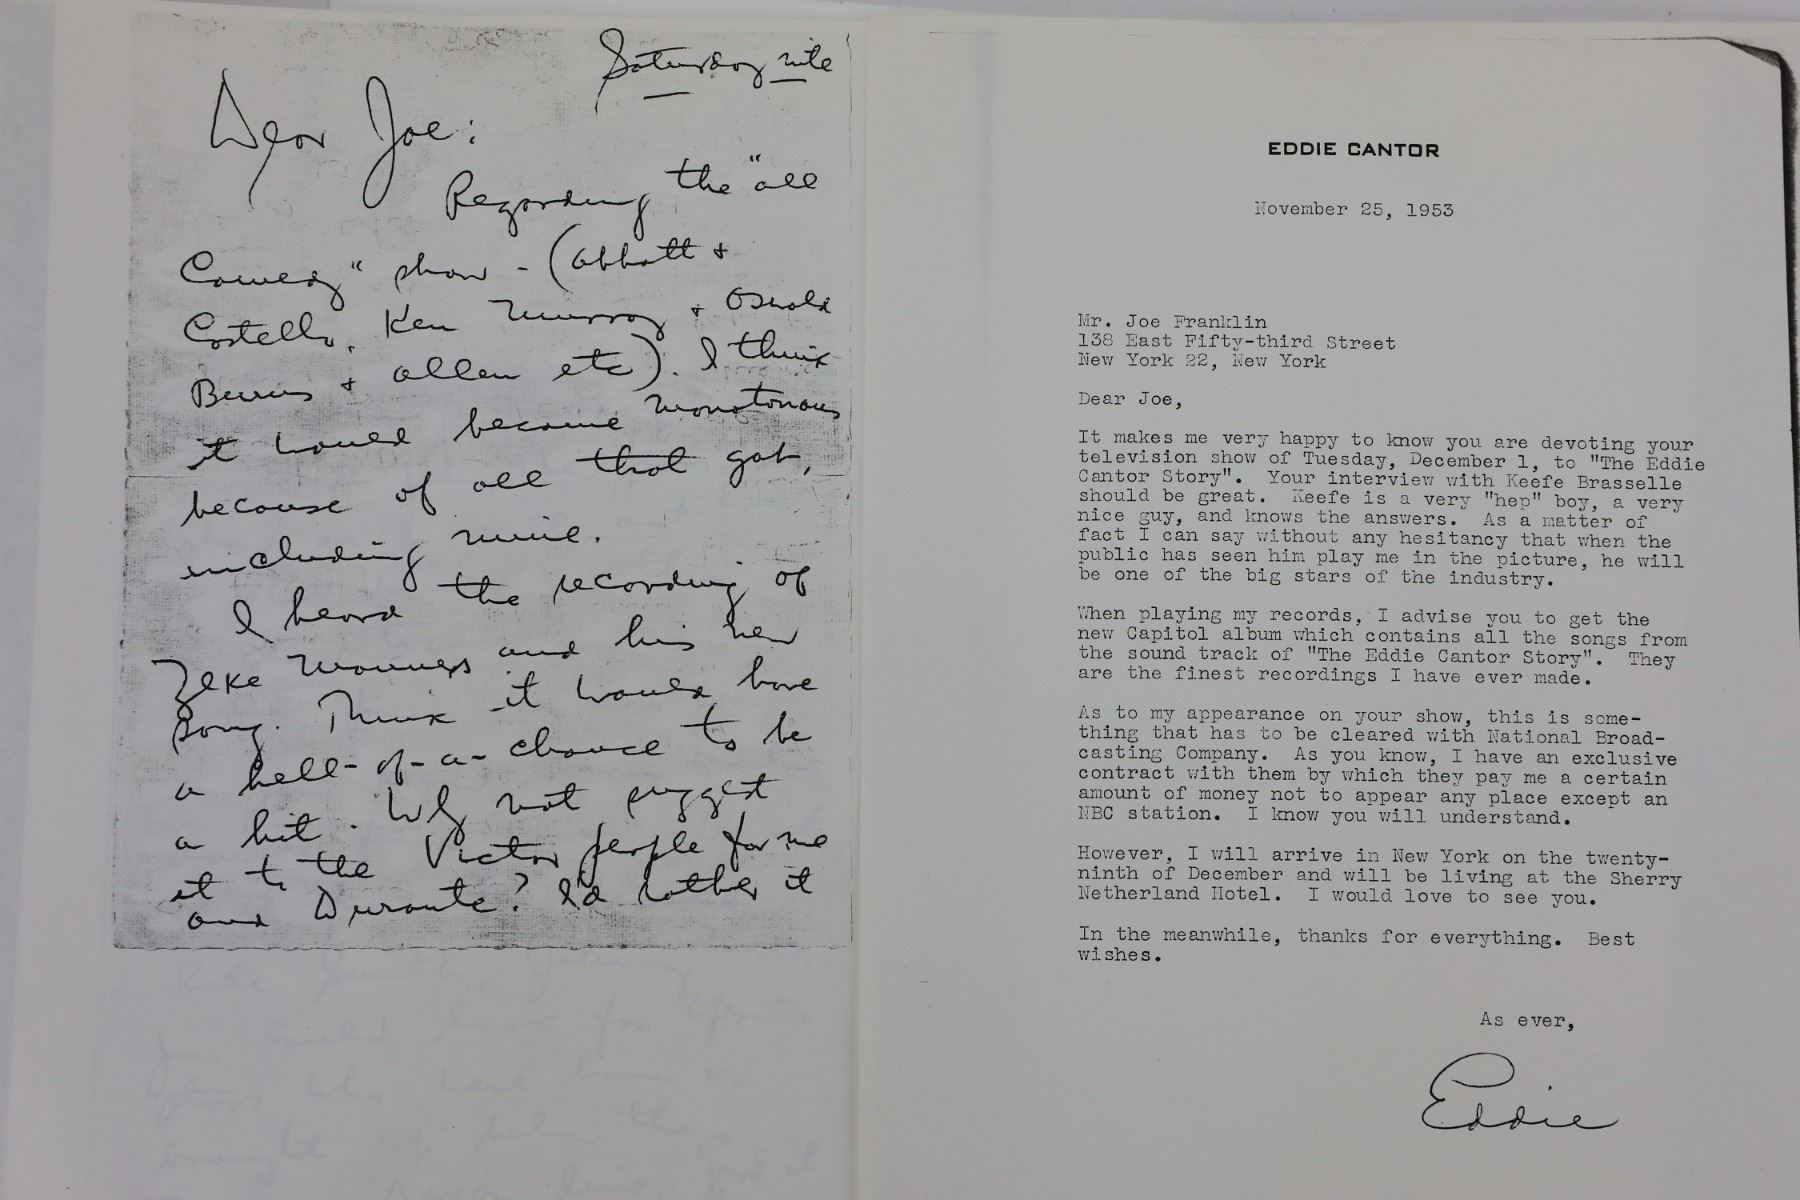 Saturday nite
Dear Joe:
Regarding the "all
Comedy" show - (Abbott +
Costello, Ken Murray + Oswald
Burns + Allen etc). I think
it would become monotonous
because of all that gab,
including mine.
I heard the recording of
Zeke Manners and his new
song. Think it would have
a hell-of-a-chance to be
a hit. Why not suggest
it to the Victor people for me
and Durante? I'd rather it
EDDIE CANTOR
November 25, 1953
Mr. Joe Franklin
138 East Fifty-third Street
New York 22, New York
Dear Joe,
It makes me very happy to know you are devoting your
television show of Tuesday, December 1, to "The Eddie
Cantor Story". Your interview with Keefe Brasselle
should be great. Keefe is a very "hep" boy, a very
nice guy, and knows the answers. As a matter of
fact I can say without any hesitancy that when the
public has seen him play me in the picture, he will
be one of the big stars of the industry.
When playing my records, I advise you to get the
new Capitol album which contains all the songs from
the sound track of "The Eddie Cantor Story". They
are the finest recordings I have ever made.
As to my appearance on your show, this is some-
thing that has to be cleared with National Broad-
casting Company. As you know, I have an exclusive
contract with them by which they pay me a certain
amount of money not to appear any place except an
NBC station. I know you will understand.
However, I will arrive in New York on the twenty-
ninth of December and will be living at the Sherry
Netherland Hotel. I would love to see you.
In the meanwhile, thanks for everything. Best
wishes.
As ever,
Eddie